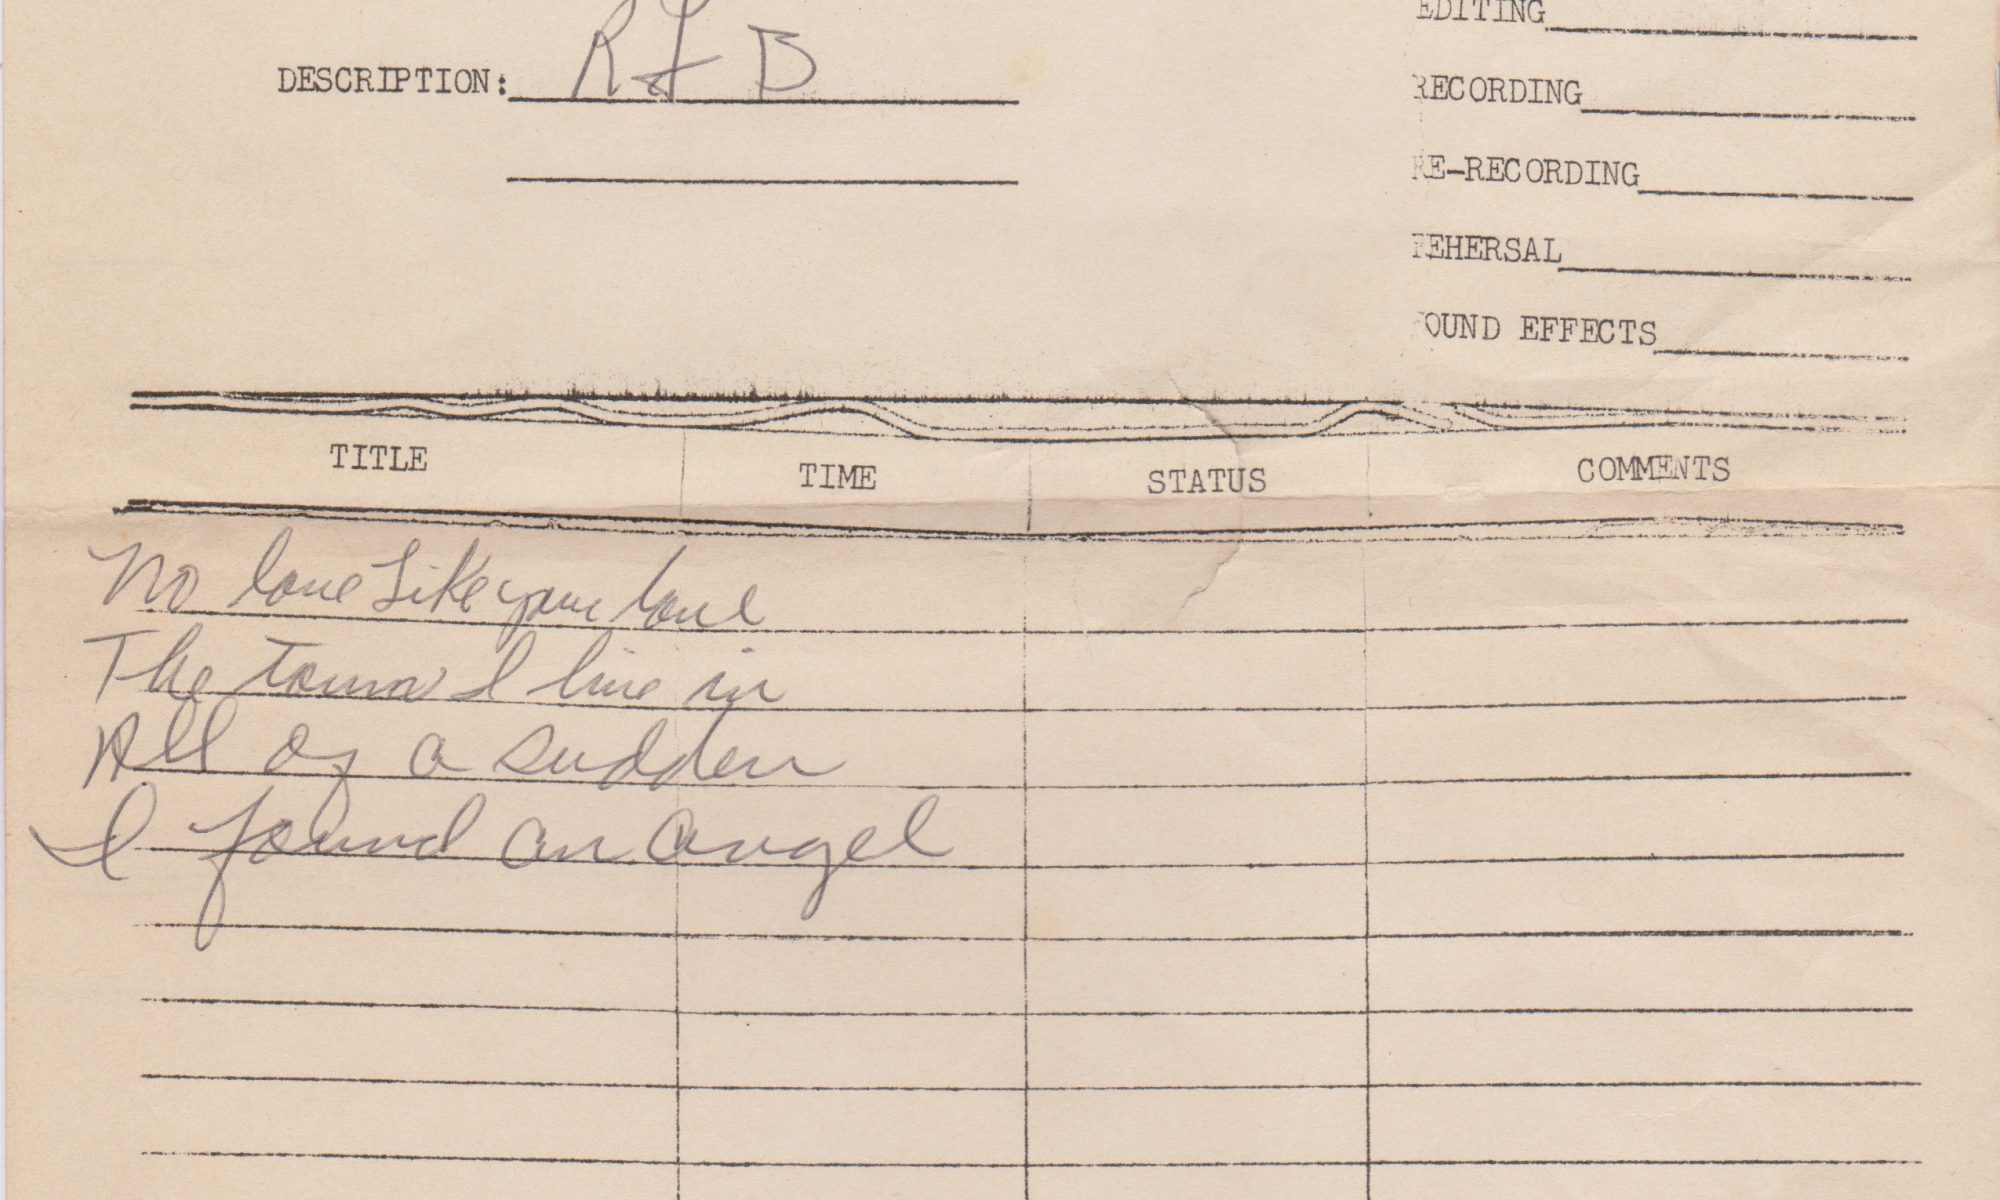 EDITING
DESCRIPTION: R & B
RECORDING
RE-RECORDING
REHERSAL
OUND EFFECTS
TITLE TIME STATUS COMMENTS
No love Like your love
The town I live in
All of a sudden
I found an angel